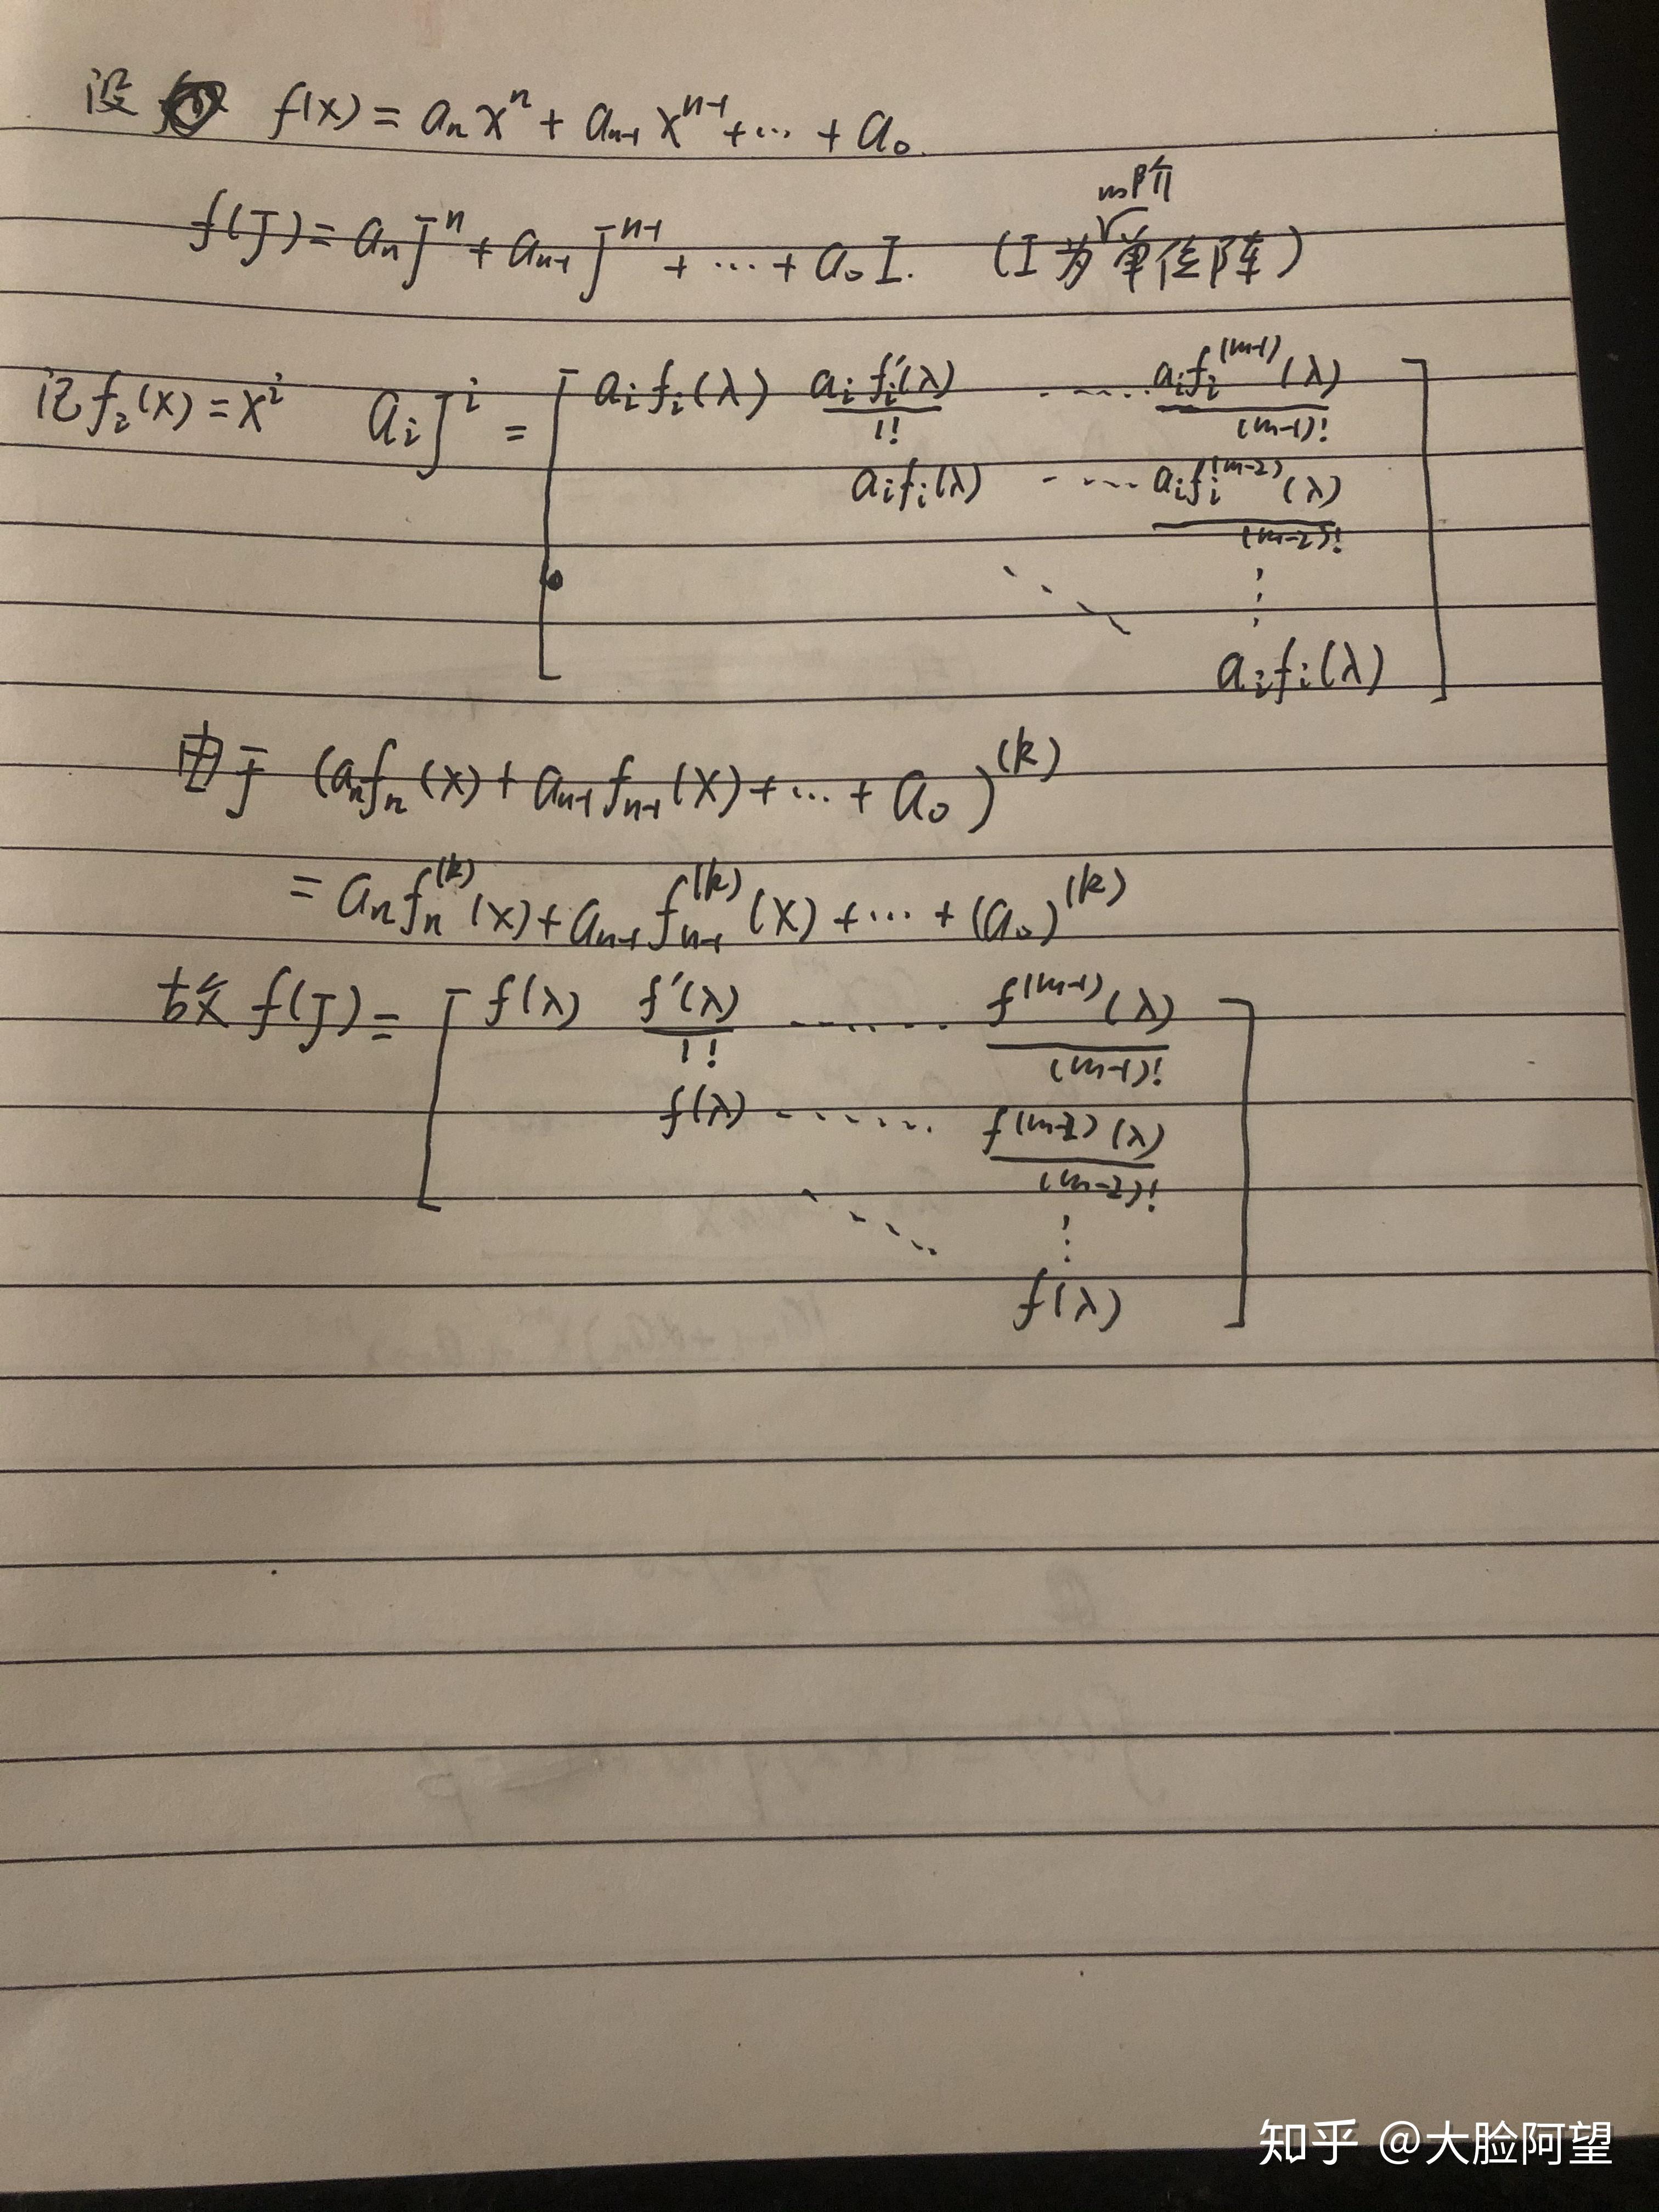 设 f(x) = aₙxⁿ + aₙ₋₁xⁿ⁻¹ + ⋯ + a₀.
f(J) = aₙJⁿ + aₙ₋₁Jⁿ⁻¹ + ⋯ + a₀I. (I为m阶单位阵)
记fᵢ(x) = xⁱ aᵢJⁱ = [ aᵢfᵢ(λ) aᵢfᵢ′(λ)/1! ⋯⋯ aᵢfᵢ^(m-1)(λ)/(m-1)!
aᵢfᵢ(λ) ⋯⋯ aᵢfᵢ^(m-2)(λ)/(m-2)!
⋱ ⋮
aᵢfᵢ(λ) ]
由于 (aₙfₙ(x) + aₙ₋₁fₙ₋₁(x) + ⋯ + a₀)^(k)
= aₙfₙ^(k)(x) + aₙ₋₁fₙ₋₁^(k)(x) + ⋯ + (a₀)^(k)
故 f(J) = [ f(λ) f′(λ)/1! ⋯⋯ f^(m-1)(λ)/(m-1)!
f(λ) ⋯⋯ f^(m-2)(λ)/(m-2)!
⋱ ⋮
f(λ) ]
知乎 @大脸阿望